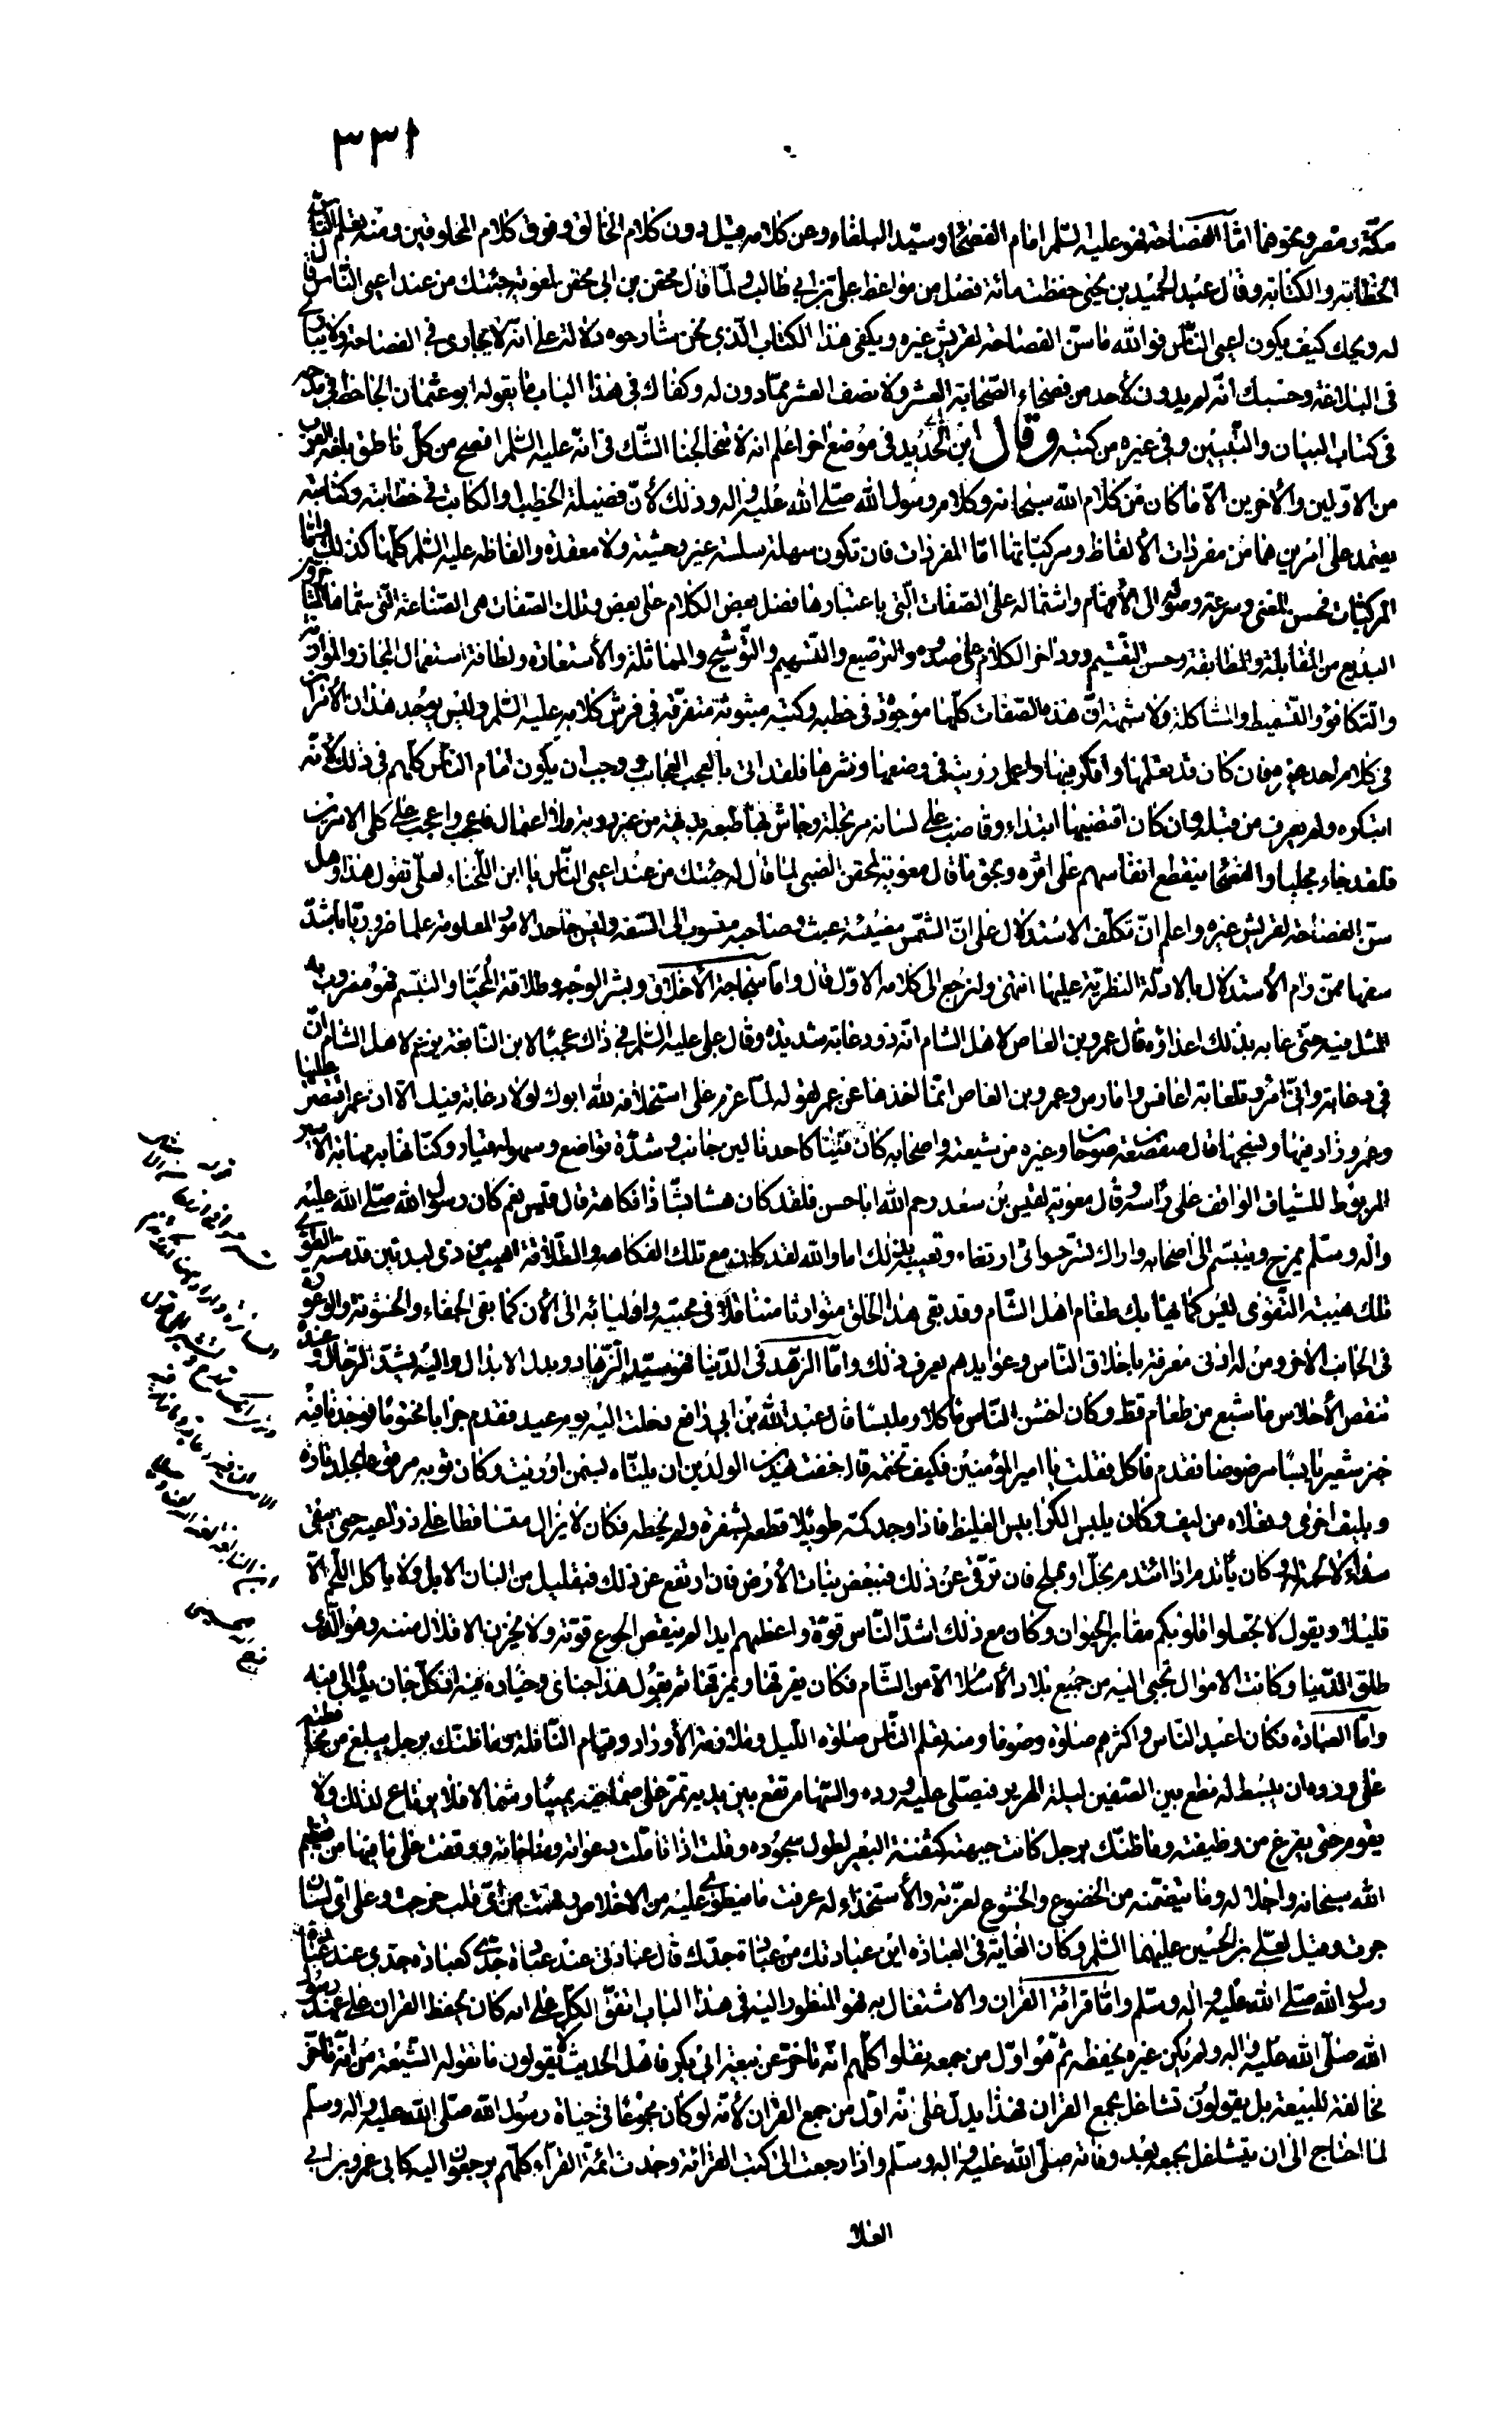 ٣٣١
مكة ومصر ونحوهما امّا الفصاحة فهو عليه السّلم امام الفصحا وسيّد البلغاء وعن كلامه قيل دون كلام الخالق وفوق كلام المخلوقين ومنه تعلم الناس
الخطابة والكتابة وقال عبد الحميد بن يحيى حفظت مائة فصل من مواعظ على بن ابي طالب ولمّا قال محقن بن ابى محقن لمعوية جئتك من عند اعيى النّاس قال
له ويحك كيف يكون اعيى النّاس فو الله ما سنّ الفصاحة لقريش غيره ويكفى هذا الكتاب الّذي نحن شارحوه دلالة على انّه لا يجارى في الفصاحة ولا يبارى
فى البلاغة وحسبك انّه لم يدون لأحد من فصحاء الصّحابة العشر ولا نصف العشر ممّا دون له وكفاك في هذا الباب ما يقوله ابو عثمان الجاحظ في مدحه
في كتاب البيان والتّبيين وفي غيره من كتبه وقال ابن ابى الحديد في موضع اخر اعلم انه لا يخالجنا الشّك في انّه عليه السّلم افصح من كلّ ناطق بلغة العرب
من الاوّلين والأخرين الّا ما كان من كلام الله سبحانه وكلام رسول الله صلّى الله عليه واله وذلك لأنّ فضيلة الخطيب والكاتب في خطابته وكتابته
يعتمد على امرين هما من مفردات الألفاظ ومركباتها امّا المفردات فان تكون سهلة سلسة غير وحشية ولا معقدة والفاظه عليه السّلم كلّها كذلك وامّا
المركبات فحسن المعنى وسرعة وصوله الى الأفهام واشتماله على الصّفات الّتي باعتبارها فضل بعض الكلام على بعض وتلك الصّفات هى الصّناعة الّتي سمّاها المتاخرون
البديع من المقابلة والمطابقة وحسن التّقسيم ورد اخر الكلام على صدره والترصيع والتّسهيم والتّوشيح والمماثلة والأستعارة ولطافة استعمال المجاز والموازنة
والتّكافؤ والتّسميط والمشاكلة ولا شبهة انّ هذه الصّفات كلّها موجودة في خطبه وكتبه مبثوثة متفرّقة في فرش كلامه عليه السّلم وليس يوجد هذان الأمران
في كلام احد غيره فان كان قد تعملها وافكر فيها واعمل رويّته في وضعها ونثرها فلقد اتى بالعجب العجاب ووجب ان يكون امام النّاس كلّهم في ذلك لأنّه
ابتكره ولم يعرف من قبله وان كان اقتضبها ابتداء وفاضت على لسانه مرتجلة وجاش بها طبعه بديهة من غير روية ولا اعتمال فاعجب واعجب على كلى الامرين
فلقد جاء مجليا والفصحا ينقطع انفاسهم على اثره وبحق ما قال معوية لمحقن الضبى لمّا قال له جئتك من عند اعيى النّاس يا ابن اللّخناء العلى تقول هذا وهل
سنّ الفصاحة لقريش غيره واعلم انّ تكلّف الاستدلال على انّ الشّمس مضيئة عبث وصاحبه منسوب الى السّفه وليس جاحد الامور المعلومة علما ضروريّا باشدّ
سفها ممّن رام الأستدلال بالادلّة النظريّة عليها انتهى ولنرجع الى كلامه الاوّل قال وامّا سجاحة الأخلاق وبشر الوجه وطلاقة المحيّا والتبسّم فهو مضروب به
المثل فيه حتّى عابه بذلك اعداؤه قال عمرو بن العاص لاهل الشام انّه ذو دعابة شديدة وقال على عليه السّلم في ذاك عجبا لابن النّابغة يزعم لاهل الشام انّ
فى دعابة وانّى امرؤ تلعابة اعافس وامارس وعمرو بن العاص انّما اخذها عن عمر لقوله لمّا عزم على استخلافه لله ابوك لولا دعابة فيك الّا ان عمر اقتصر عليها
وعمرو زاد فيها وسمجها قال صعصعة بن صوحان وغيره من شيعته واصحابه كان فينا كاحدنا لين جانب وشدّة تواضع وسهولة قياد وكنّا نهابه مهابة الاسير
المربوط للسّياف الواقف على راسه وقال معوية لقيس بن سعد رحم الله ابا حسن فلقد كان هشا بشّا ذا فكاهة قال قيس نعم كان رسول الله صلّى الله عليه
واله وسلّم يمزح ويتبسّم الى اصحابه واراك تسرّ حسوا في ارتغاء وتعيبه بذلك اما والله لقد كان مع تلك الفكاهة والطّلاقة اهيب من ذى لبدتين قد مسّه الطوى
تلك هيبة التّقوى ليس كما يهابك طغام اهل الشّام وقد بقى هذا الخلق متوارثا متناقلا في محبّيه واوليائه الى الأن كما بقى الجفاء والخشونة والوعورة
في الجانب الأخر ومن له ادنى معرفة باخلاق النّاس وعوايدهم يعرف ذلك وامّا الزّهد في الدّنيا فهو سيّد الزّهاد وبدل الابدال واليه يشدّ الرّحال وعنده
تنفض الأحلاس ما شبع من طعام قط وكان اخشن النّاس ماكلا وملبسا قال عبد الله بن ابي رافع دخلت اليه يوم عيد فقدم جرابا مختوما فوجدنا فيه
خبز شعير يابسا مرضوضا فقدم فاكل فقلت يا امير المؤمنين فكيف تختمه قال خفت هذين الولدين ان يلتّاه بسمن او زيت وكان ثوبه مرقوعا بجلد تارة
وبليف اخرى ونعلاه من ليف وكان يلبس الكرابيس الغليظ فاذا وجد كمّه طويلا قطعه بشفرة ولم يخطه فكان لا يزال متساقطا على ذراعيه حتى يبقى
سدى لا لحمة له وكان يأتدم اذا ائتدم بخلّ او بملح فان ترقّى عن ذلك فبعض نبات الأرض فان ارتفع عن ذلك فبقليل من البان الابل ولا ياكل اللّحم الّا
قليلا ويقول لا تجعلوا قلوبكم مقابر الحيوان وكان مع ذلك اشدّ النّاس قوّة واعظمهم ايدا لم ينقص الجوع قوّته ولا يخون الاقلال منّته وهو الّذى
طلّق الدّنيا وكانت الاموال تجبى اليه من جميع بلاد الأسلام الّا من الشّام فكان يفرقها ويمزقها ثم يقول هذا جناى وخياره فيه اذ كلّ جان يده الى فيه
وامّا العبادة فكان اعبد النّاس واكثرهم صلوة وصوما ومنه تعلم النّاس صلوة اللّيل وملازمة الأوراد وقيام النّافلة وما ظنّك برجل يبلغ من محافظته
على ورده ان يبسط له نطع بين الصّفين ليلة الهرير فيصلّى عليه ورده والسّهام تقع بين يديه تمرّ على صماخيه يمينا وشمالا فلا يرتاع لذلك ولا
يقوم حتى يفرغ من وظيفته وما ظنّك برجل كانت جبهته كثفنة البعير لطول سجوده وقلت اذا تامّلت دعواته ومناجاته ووقفت على ما فيها من تعظيم
الله سبحانه واجلاله وما يتضمّنه من الخضوع والخشوع لعزّته والأستخذاء له عرفت ما ينطوى عليه من الاخلاص وفهمت من اىّ قلب خرجت وعلى اىّ لسان
جرت وقيل لعلى بن الحسين عليهما السّلم وكان الغاية في العبادة اين عبادتك من عبادة جدّك قال عبادتى عند عبادة جدّى كعبادة جدّي عند عبادة
رسول الله صلّى الله عليه واله وسلّم وامّا قرائة القران والاشتغال به فهو المنظور اليه في هذا الباب اتفق الكلّ على انه كان يحفظ القران على عهد رسول
الله صلّى الله عليه واله ولم يكن غيره يحفظه ثمّ هو اوّل من جمعه نقلوا كلّهم انّه تاخّر عن بيعة ابى بكر فاهل الحديث لا يقولون ما تقوله الشّيعة من انّه تاخّر
مخالفة للبيعة بل يقولون تشاغل بجمع القران فهذا يدلّ على انّه اوّل من جمع القران لأنّه لو كان مجموعا في حياة رسول الله صلّى الله عليه واله وسلّم
لما احتاج الى ان يتشاغل بجمعه بعد وفاته صلّى الله عليه واله وسلّم واذا رجعت الى كتب القرائة وجدت ائمّة القرّاء كلّهم يرجعون اليه كابى عمرو بن ابي
العلا